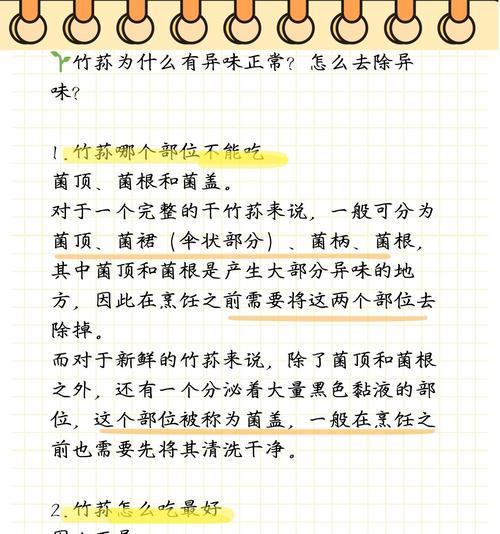 竹荪为什么有异味正常？怎么去除异
味？
1.竹荪哪个部位不能吃
菌顶、菌根和菌盖。
对于一个完整的干竹荪来说，一般可分为
菌顶、菌裙（伞状部分）、菌柄、菌根，
其中菌顶和菌根是产生大部分异味的地
方，因此在烹饪之前需要将这两个部位去
除掉。
而对于新鲜的竹荪来说，除了菌顶和菌根
之外，还有一个分泌着大量黑色黏液的部
位，这个部位被称为菌盖，一般在烹饪之
前也需要先将其清洗干净。
2.竹荪怎么吃最好